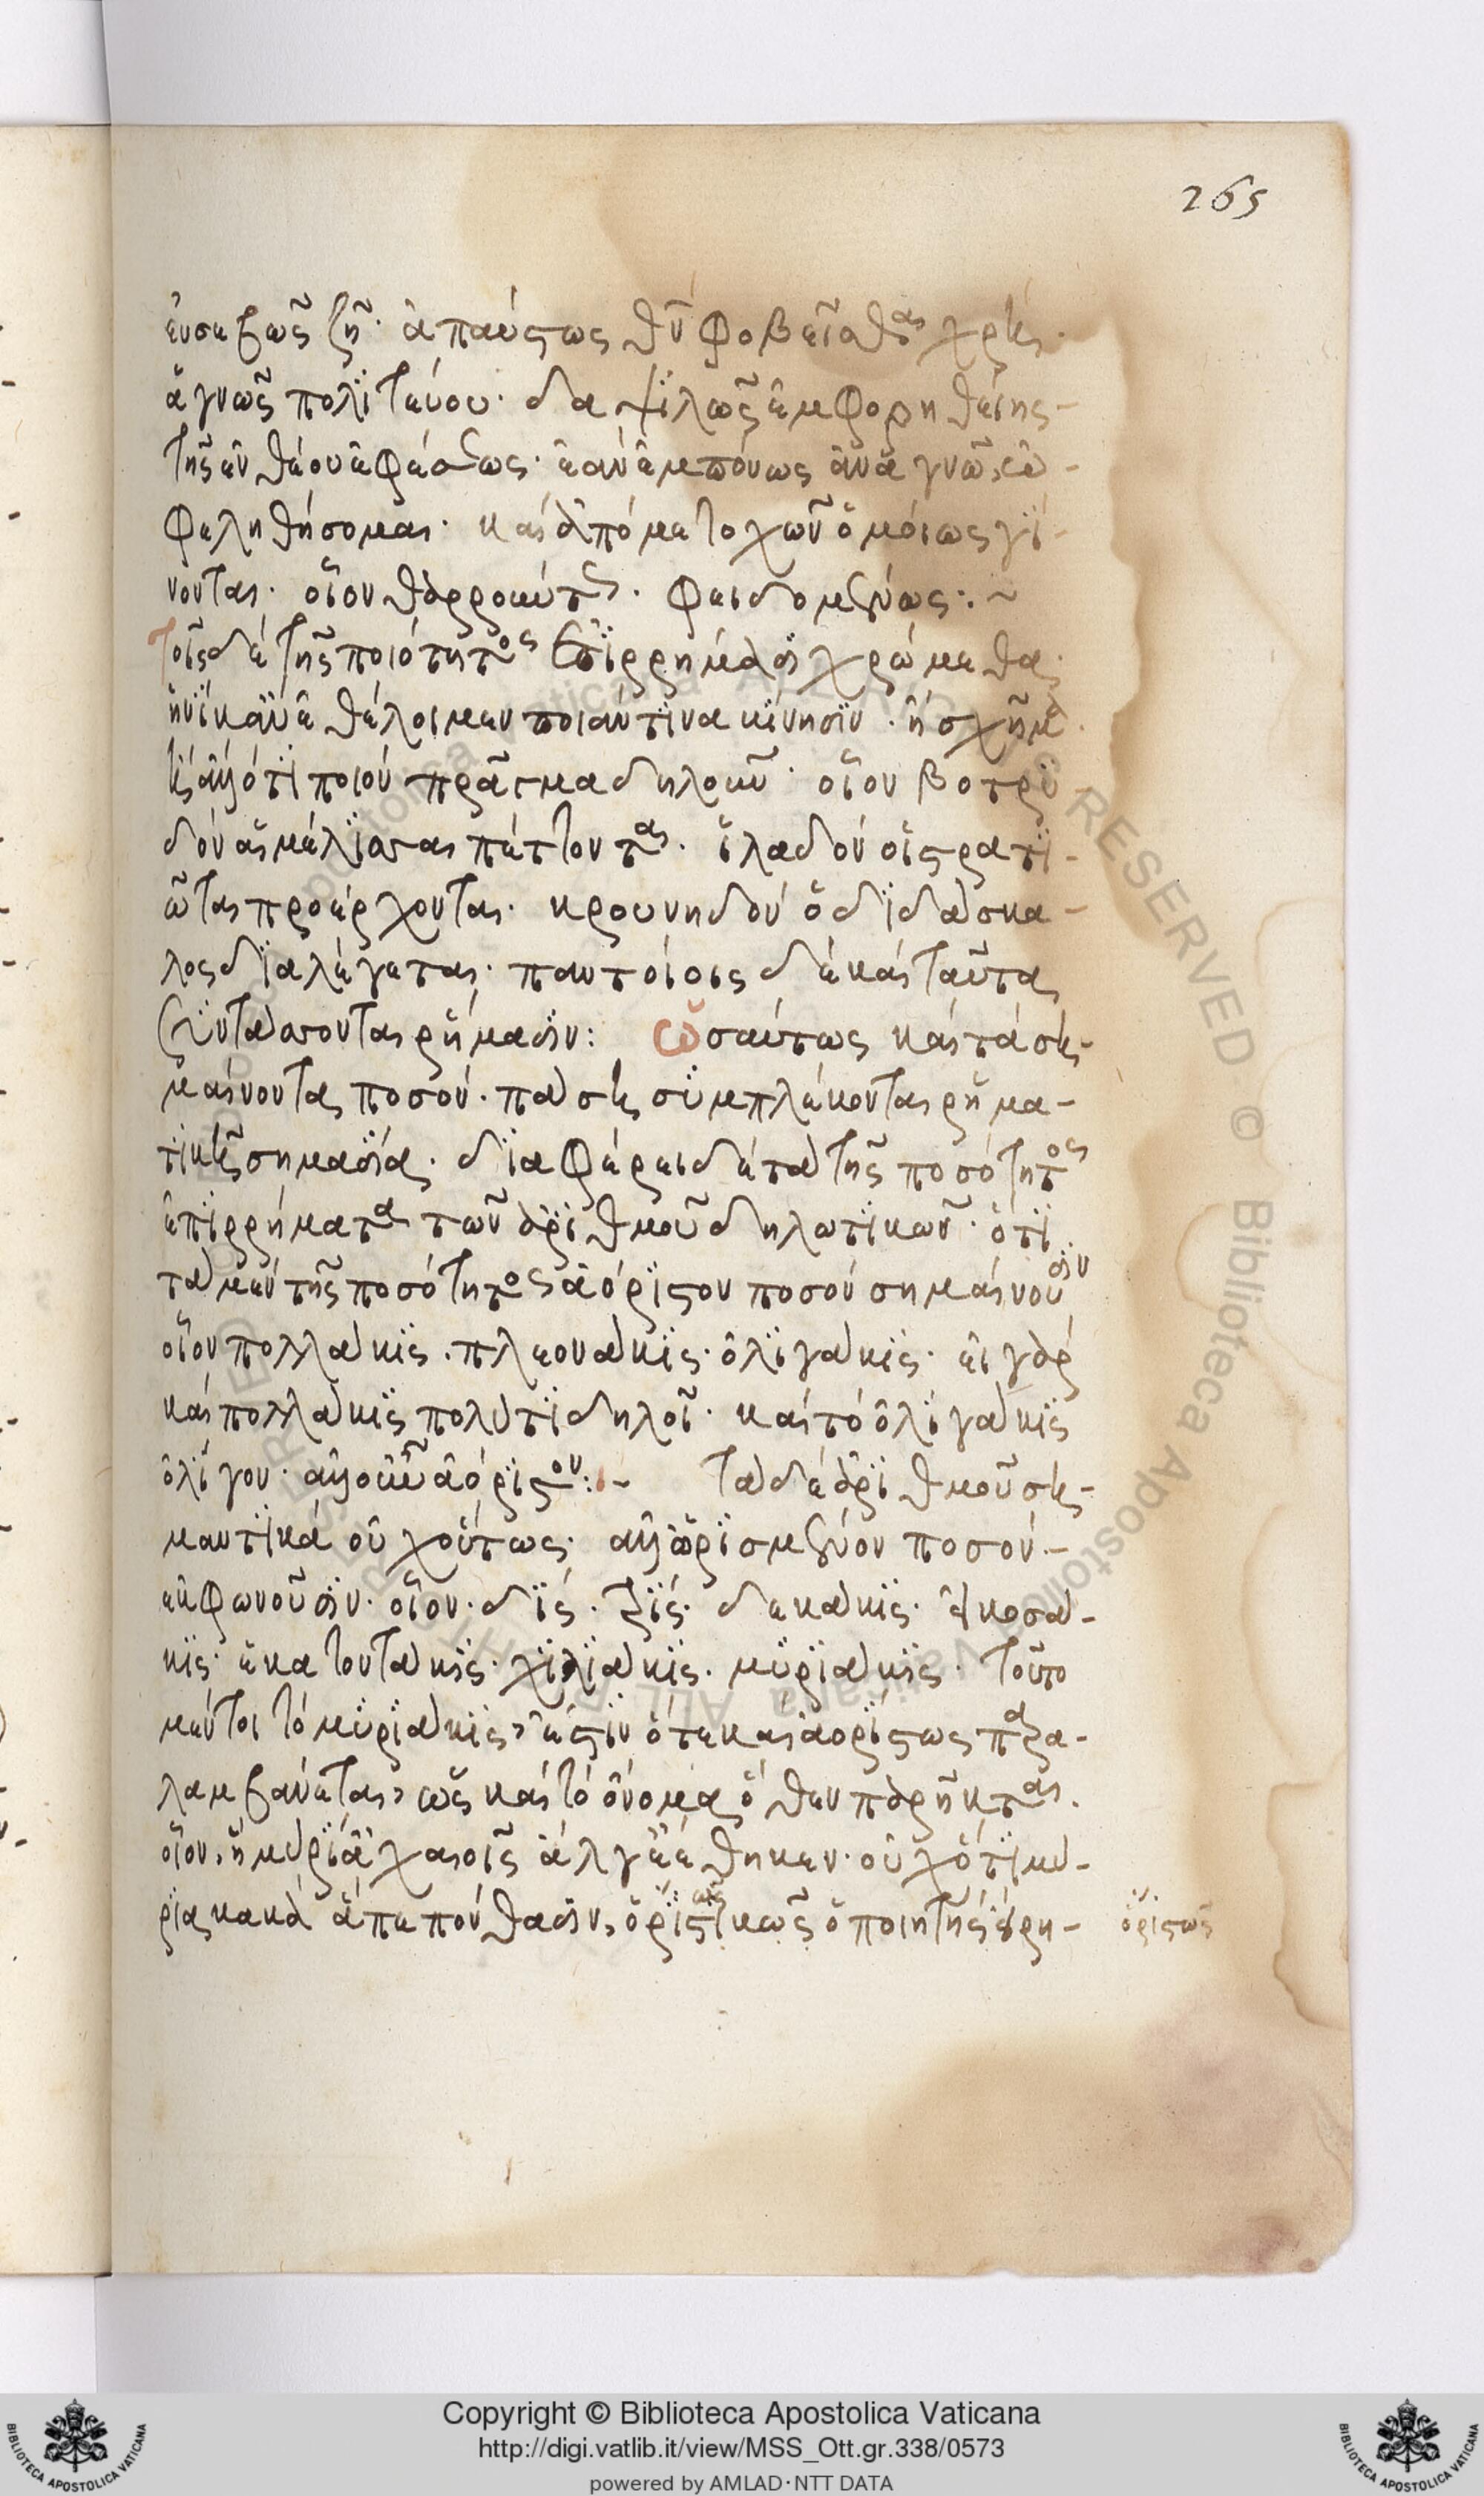 265
εὐσεβῶς ζῆν· ἀπαύστως θν̄ φοβεῖσθαι χρή·
ἁγνῶς πολιτεύου· δαψιλῶς ἐμφορηθείης
τῆς ἐνθέου ἐφέσεως· ἐὰν ἐμπόνως ἀναγνῶς ὠ-
φεληθήσομαι· καὶ ἀπὸ μετοχῶν ὁμοίως γί-
νονται· οἷον θαρρούντως· φειδομένως:~
Τοῖς δὲ τῆς ποιότητος ἐπιρρήμασι χρώμεθα
ἡνίκα ἂν ἐθέλοιμεν ποιάν τινα κίνησιν· ἢ σχῆμα
ἢ ἄλλό τι ποιὸν πρᾶγμα δηλοῦν· οἷον βοτρυ-
δὸν αἱ μέλισσαι πέττονται· ἰλαδὸν οἱ στρατι-
ῶται προέρχονται· κρουνηδὸν ὁ διδάσκα-
λος διαλέγεται· παντοίοις δὲ καὶ ταῦτα
συντάσσονται ῥήμασιν: Ὡσαύτως καὶ τὰ ση-
μαίνοντα ποσόν· πάση συμπλέκονται ῥημα-
τικῆ σημασία· διαφέρει δὲ τὰ τῆς ποσότητος
ἐπιρρήματα τῶν ἀριθμοῦ δηλωτικῶν· ὅτι
τὰ μὲν τῆς ποσότητος ἀόριστον ποσὸν σημαίνουσιν
οἷον πολλάκις· πλεονάκις· ὀλιγάκις· εἰ γὰρ
καὶ πολλάκις πολύ τι δηλοῖ· καὶ τὸ ὀλιγάκις
ὀλίγον· ἀλλ' οὖν ἀόριστον:~ Τὰ δὲ ἀριθμοῦ ση-
μαντικὰ οὐχ οὕτως· ἀλλ' ὡρισμένον ποσόν·-
ἐκφωνοῦσιν· οἷον· δίς· τρίς· δεκάκις· εἰκοσά-
κις· ἑκατοντάκις· χιλιάκις· μυριάκις· τοῦτο
μέντοι τὸ μυριάκις, ἔστιν ὅτε καὶ ἀορίστως παρα-
λαμβάνεται, ὡς καὶ τὸ ὄνομα ὅθεν παρῆκται·
οἷον, ἣ μυρί' ἀχαιοῖς ἄλγε' ἔθηκεν· οὐχ ὅτι μυ-
ρία κακὰ ἃ πεπόνθασιν, ὁριστικῶς ὁ ποιητὴς εἴρη- ὁρίστως
Copyright © Biblioteca Apostolica Vaticana
http://digi.vatlib.it/view/MSS_Ott.gr.338/0573
powered by AMLAD·NTT DATA